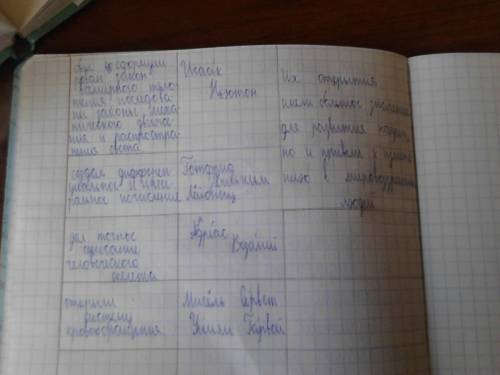 был сформули
рован закон
всемирного тяго
тения исследова
ны законы меха
нического движе
ния и распростра
нения света
Исаак
Ньютон
Их открытия
имели большое значение
для развития науки,
но и привели к измене
нию в мировоззрении
людей
создал дифферен
циальное и интег
ральное исчисление
Готфрид
Вильгельм
Лейбниц
дал точное
описание
человеческого
скелета
Андреас
Везалий
открыли
систему
кровообращения
Мигель Сервет
Уильям Гарвей